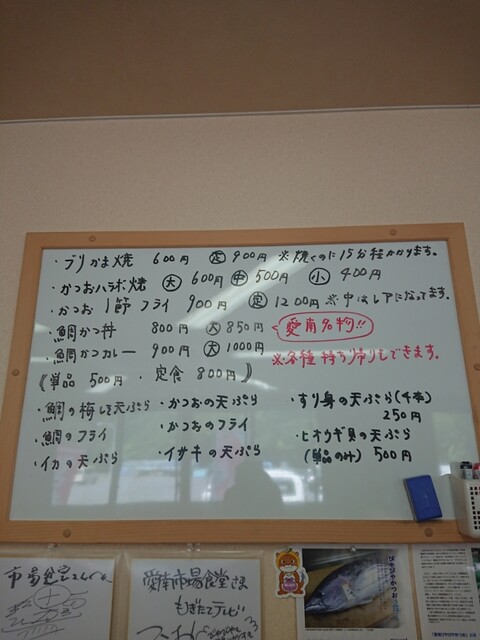 ・ブリかま焼 600円 定 900円 ※焼くのに15分程かかります。
・かつおハラボ焼 大 600円 中 500円 小 400円
・かつお1節フライ 900円 定 1200円 ※中はレアになってます。
・鯛かつ丼 800円 大 850円 愛南名物!!
・鯛かつカレー 900円 大 1000円 ※各種持ち帰りもできます。
《単品 500円 ・定食 800円》
・鯛の梅しそ天ぷら ・かつおの天ぷら ・すり身の天ぷら(4本)
250円
・鯛のフライ ・かつおのフライ ・ヒオウギ貝の天ぷら
・イカの天ぷら ・イサキの天ぷら (単品のみ) 500円
愛南市場食堂さま
もぎたてテレビ
びやびやかつお